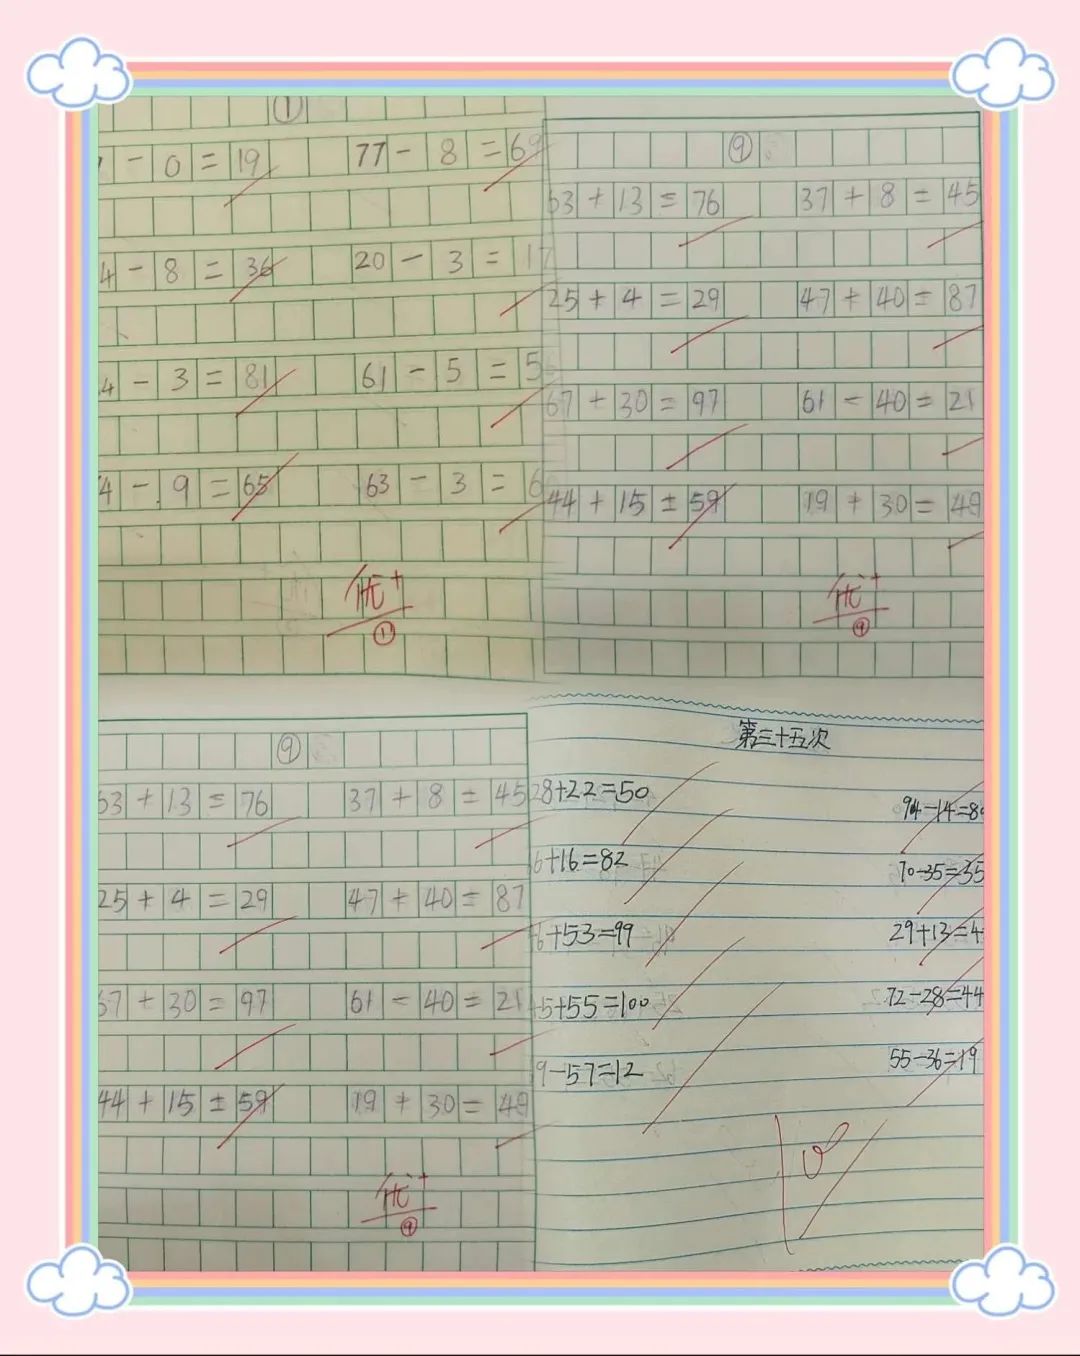 ①
- 0 = 19  77 - 8 = 69
4 - 8 = 36  20 - 3 = 17
4 - 3 = 81  61 - 5 = 56
4 - 9 = 65  63 - 3 = 6
优+
①
⑨
63 + 13 = 76  37 + 8 = 45
25 + 4 = 29  47 + 40 = 87
67 + 30 = 97  61 - 40 = 21
44 + 15 = 59  19 + 30 = 49
优+
⑨
⑨
63 + 13 = 76  37 + 8 = 45
25 + 4 = 29  47 + 40 = 87
67 + 30 = 97  61 - 40 = 21
44 + 15 = 59  19 + 30 = 49
优+
⑨
第三十五次
28+22=50  94-14=80
6+16=82  70-35=35
6+53=99  29+13=4
45+55=100  72-28=44
9-57=12  55-36=19